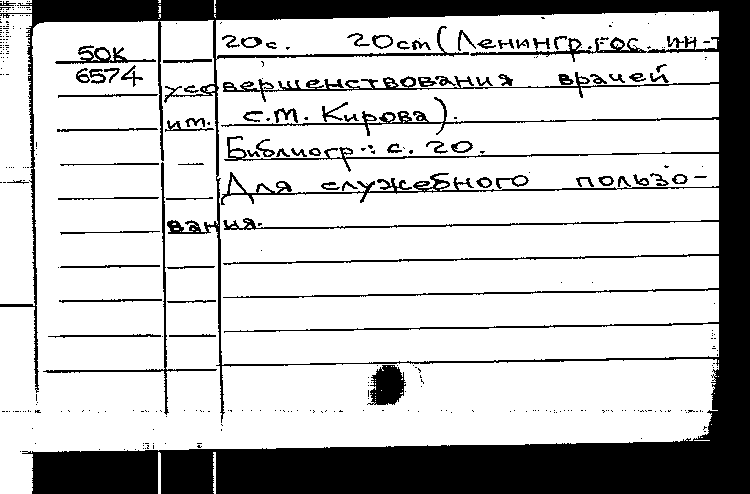 50К
6574
20с. 20см (Ленингр.гос. ин-т
усовершенствования врачей
им. С.М. Кирова).
Библиогр.: с. 20.
Для служебного пользо-
вания.